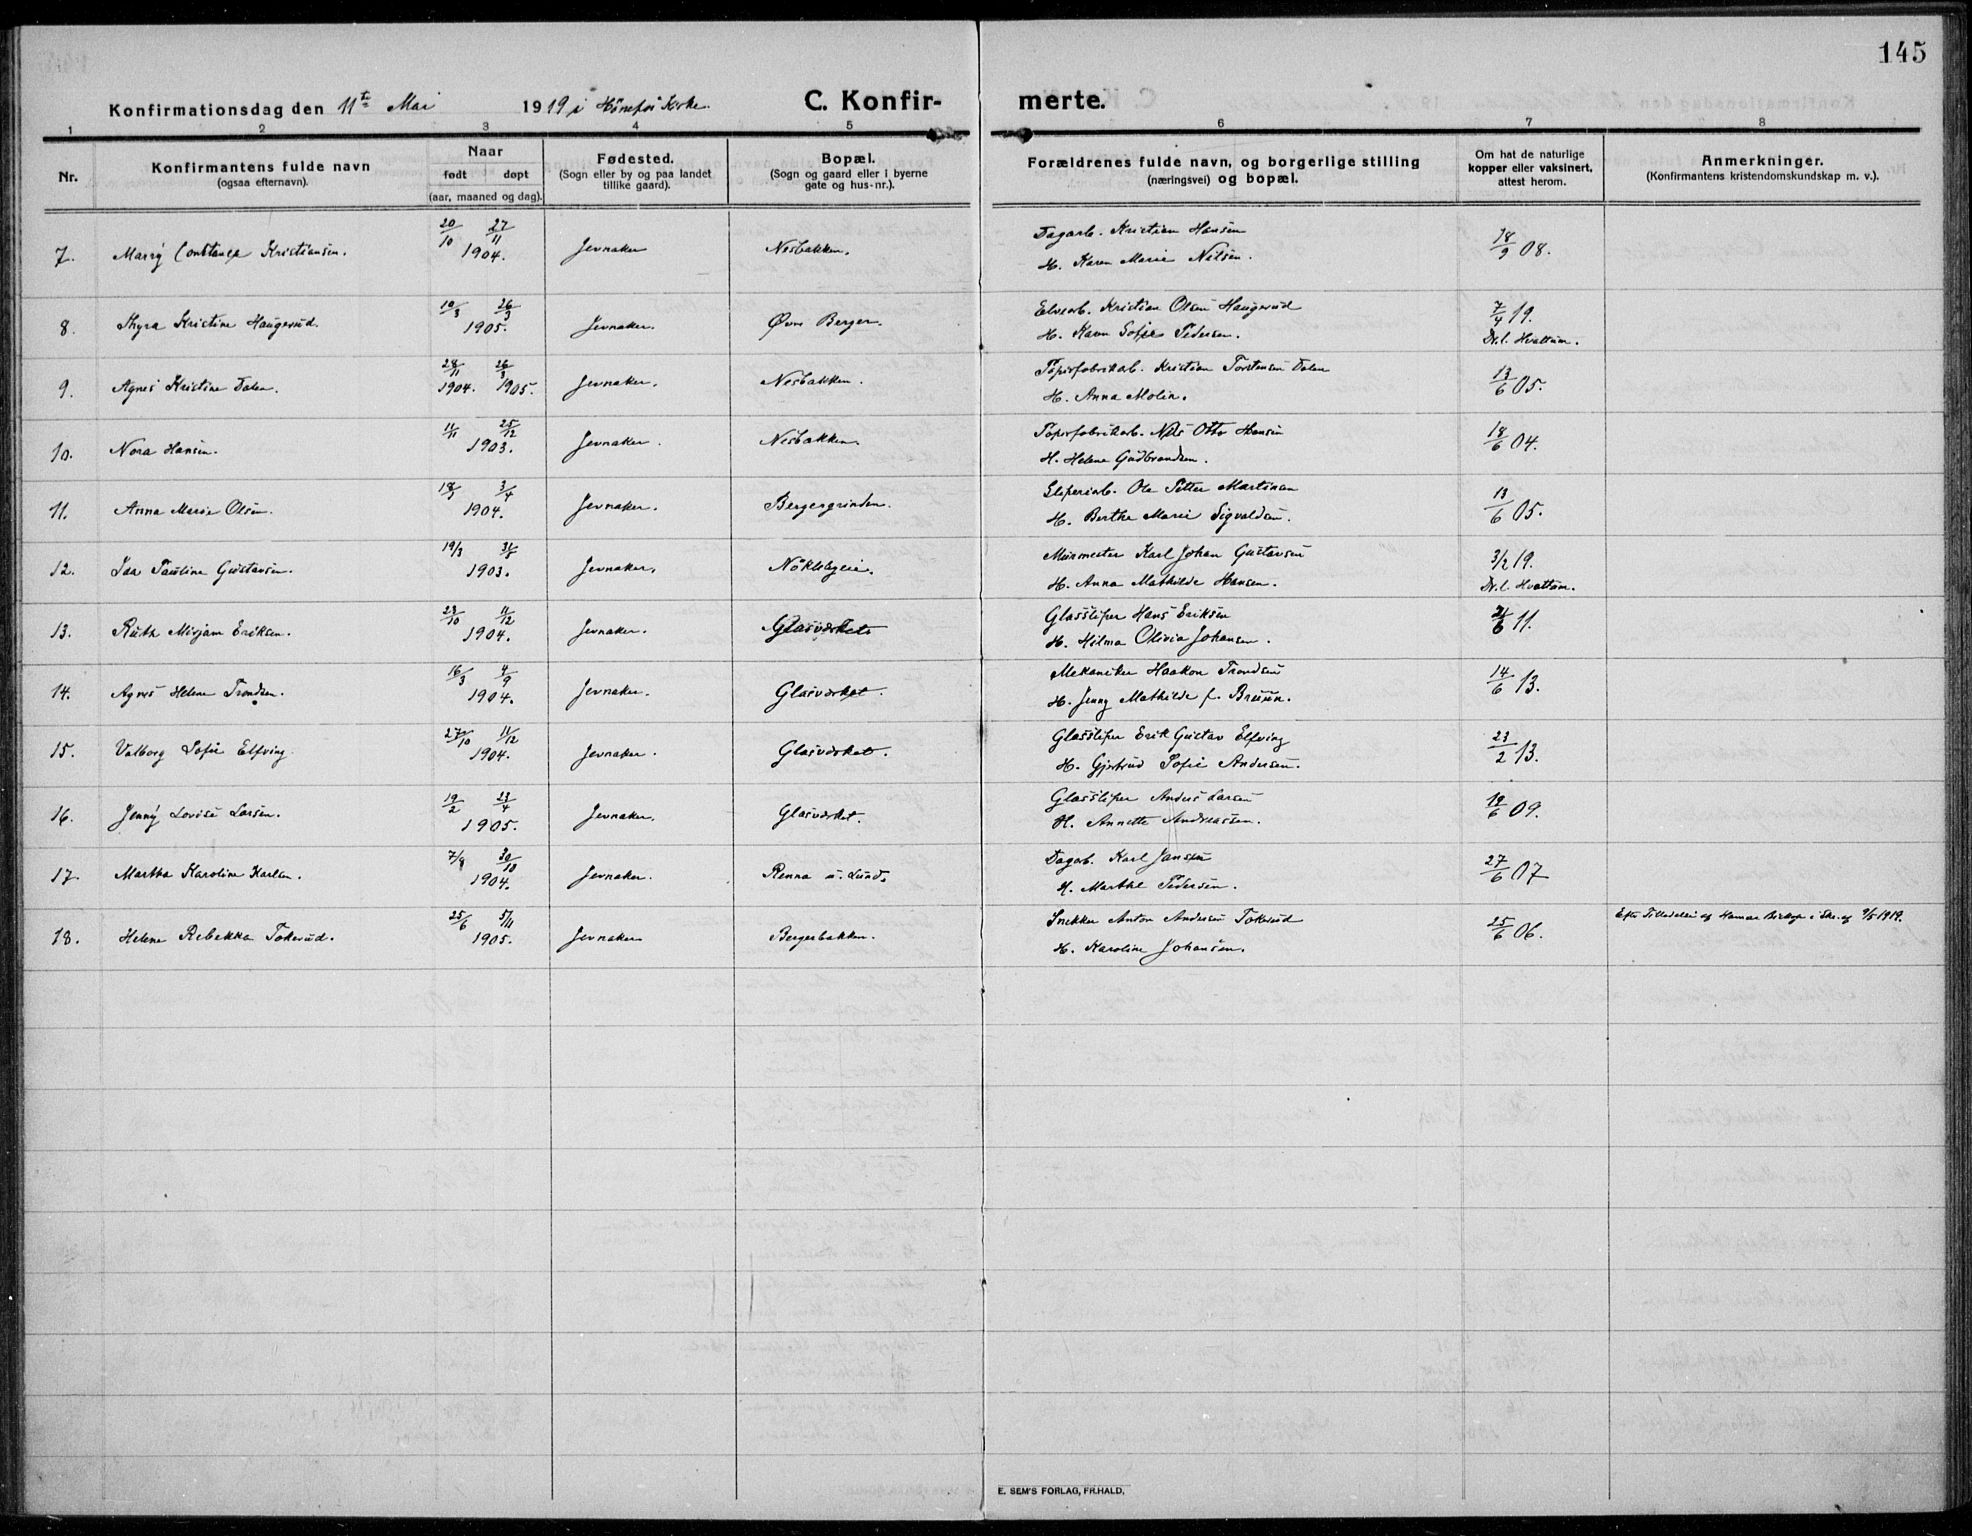 145
Konfirmationsdag den 11te Mai 1919 i Hønefos Kirke. C. Konfir- merte.
1 2 3 4 5 6 7 8
Nr.
Konfirmantens fulde navn
(ogsaa efternavn).
Naar
født døpt
(aar, maaned og dag).
Fødested.
(Sogn eller by og paa landet
tillike gaard).
Bopæl.
(Sogn og gaard eller i byerne
gate og hus-nr.).
Forældrenes fulde navn, og borgerlige stilling
(næringsvei) og bopæl.
Om hat de naturlige
kopper eller vaksinert,
attest herom.
Anmerkninger.
(Konfirmantens kristendomskundskap m. v.).
20/10 27/11 Dagarb. Kristian Hansen
7. Marry Constance Kristiansen. 1904. Jevnaker Nesbakken. 18/9 08.
H. Karen Marie Nilsen.
10/3 26/3 Elvearb. Kristian Olsen Haugerud
8. Thyra Kristine Haugerud. 1905. Jevnaker. Øvre Berger. 7/4 19.
H. Karen Sofie Pedersen. Dr. l. Hvattum.
28/11 26/3 Papirfabrikarb. Kristian Torstensen Dalen
9. Agnes Kristine Dalen. 1904. 1905. Jevnaker. Nesbakken. 13/6 05.
H. Anna Molin.
11/11 25/12 Papirfabrikarb. Nils Otto Hansen
10. Nora Hansen. 1903. Jevnaker. Nesbakken. 18/6 04.
H. Helene Gudbrandsen.
3/4 Sliperiarb. Ole Petter Martinsen
11. Anna Marie Olsen. 1904. Jevnaker. Bergergrinden. 13/6 05.
H. Berthe Marie Sigvaldsen.
19/3 31/5 Murmester Karl Johan Gustavsen
12. Ida Pauline Gustavsen. 1903. Jevnaker. Nöklebyeie. 3/2 19.
H. Anna Mathilde Hansen. Dr. l. Hvattum.
23/10 11/12 Glassliper Hans Eriksen
13. Ruth Mirjam Eriksen. 1904. Jevnaker. Glasværket. /6 11.
H. Hilma Olivia Johansen.
16/3 4/9 Mekaniker Haakon Trondsen
14. Agnes Helene Trondsen. 1904. Jevnaker. Glasværket. 14/6 13.
H. Jenny Mathilde f. Bruun.
27/10 11/12 Glassliper Erik Gustav Elfving
15. Valborg Sofie Elfving 1904. Jevnaker. Glasværket. 23/2 13.
H. Gjertrud Sofie Andersen.
19/2 23/4 Glassliper Anders Larsen
16. Jenny Lovise Larsen. 1905. Jevnaker. Glasværket. 19/6 09.
H. Annette Andreassen.
7/9 30/10 Dagarb. Karl Jansen
17. Martha Karoline Karlsen. 1904. Jevnaker. Renna u. Lunds 27/6 07
H. Marthe Pedersen.
25/6 5/11 Snekker Anton Andersen Tokerud
18. Helene Rebekka Tokerud. 1905. Jevnaker Bergerbakken. 25/6 06. Efter Tilladelse af Hamar Biskop i Skr. af 9/5 1919.
H. Karoline Johansen.
E. SEM'S FORLAG, FR.HALD.